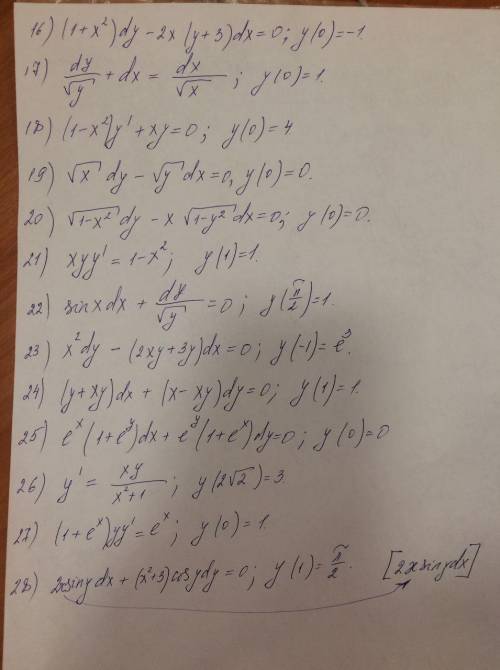 16) (1+x²)dy - 2x(y+3)dx = 0; y(0) = -1.
17) dy/√y + dx = dx/√x ; y(0) = 1.
18) (1-x²)y' + xy = 0; y(0) = 4
19) √x dy - √y dx = 0, y(0) = 0.
20) √(1-x²) dy - x√(1-y²) dx = 0; y(0) = 0.
21) xyy' = 1-x²; y(1) = 1.
22) sinxdx + dy/√y = 0; y(π/2) = 1.
23) x²dy - (2xy+3y)dx = 0; y(-1) = e³.
24) (y+xy)dx + (x-xy)dy = 0; y(1) = 1.
25) eˣ(1+eʸ)dx + eʸ(1+eˣ)dy = 0; y(0) = 0
26) y' = xy/(x²+1) ; y(2√2) = 3.
27) (1+eˣ)yy' = eˣ; y(0) = 1.
28) 2xsinydx + (x²+3)cosydy = 0; y(1) = π/2. [2xsinydx]